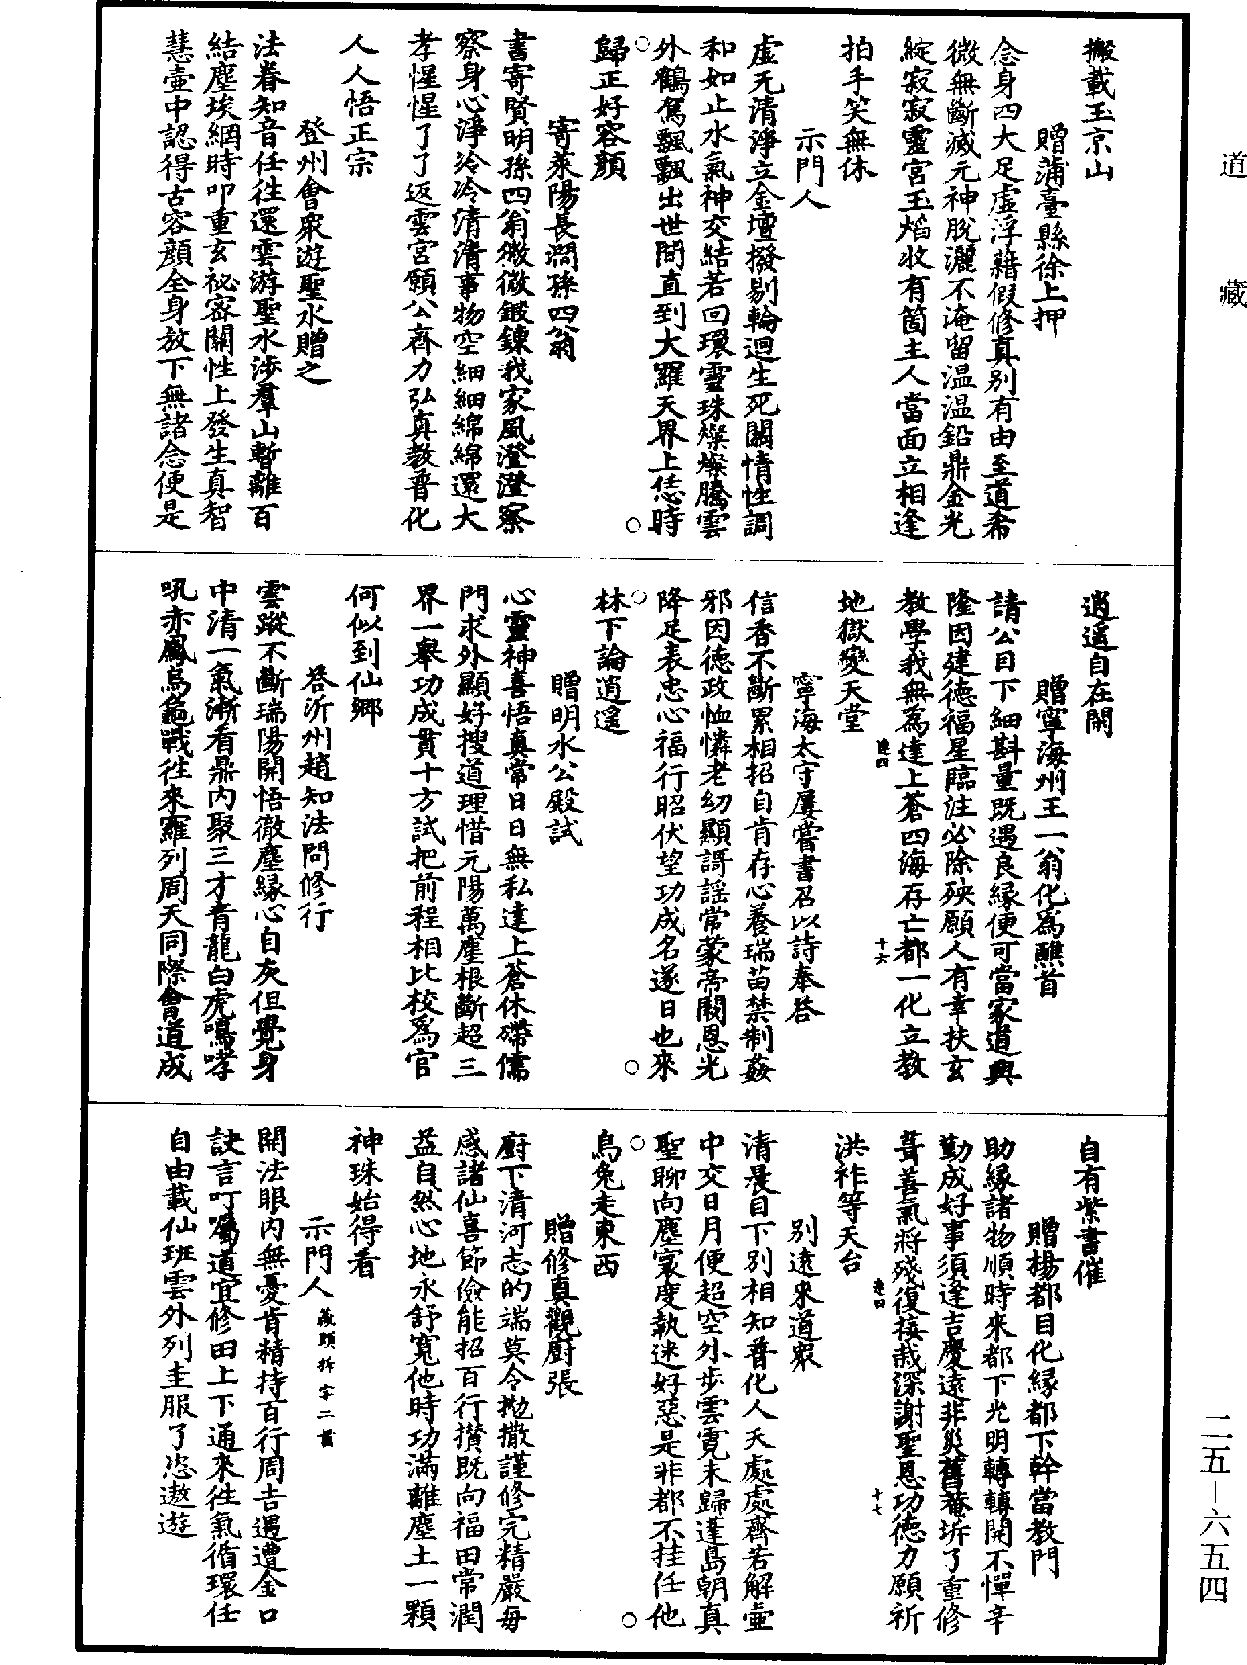 道藏
搬載玉京山
贈蒲臺縣徐上押
念身四大足虛浮藉假修真別有由至道希
微無斷滅元神脫灑不淹留温温鉛鼎金光
綻寂寂靈宮玉焰收有箇主人當面立相逢
拍手笑無休
示門人
虛无清淨立金壇撥剔輪迴生死關情性調
和如止水氣神交結若回環靈珠燦燦騰雲
外鶴駕飄飄出世間直到大羅天界上恁時
歸正好容顏
寄萊陽長澗孫四翁
書寄賢明孫四翁微微鍛鍊我家風澄澄察
察身心淨泠泠清清事物空細細綿綿還大
孝惺惺了了返雲宮願公齊力弘真教普化
人人悟正宗
登州會衆遊聖水贈之
法眷知音任往還雲游聖水涉羣山暫離百
結塵埃網時叩重玄祕密關性上發生真智
慧壺中認得古容顏全身放下無諸念便是
逍遥自在閑
贈寧海州王一翁化為醮首
請公目下細斟量既遇良緣便可當家道興
隆因建德福星臨注必除殃願人有幸扶玄
教學我無為達上蒼四海存亡都一化立教
地獄變天堂
寧海太守屢嘗書召以詩奉荅
信香不斷累相招自肯存心養瑞苗禁制姦
邪因德政恤憐老幼顯謌謠常蒙帝闕恩光
降足表忠心福行昭伏望功成名遂日也來
林下論逍遥
贈明水公殿試
心靈神喜悟真常日日無私達上蒼休殢儒
門求外顯好搜道理惜元陽萬塵根斷超三
界一舉功成貫十方試把前程相比校為官
何似到仙鄉
荅沂州趙知法問修行
雲蹤不斷瑞陽開悟徹塵緣心自灰但覺身
中清一氣漸看鼎內聚三才青龍白虎噑哮
吼赤鳳烏龜戰往來羅列周天同際會道成
自有紫書催
贈楊都目化緣都下幹當教門
助緣諸物順時來都下光明轉轉開不憚辛
勤成好事須逢吉慶遠非災舊菴坼了重修
葺善氣將殘復接栽深謝聖恩功德力願祈
洪祚等天台
別遠來道衆
清晨目下別相知普化人天處處齊若解壺
中交日月便超空外步雲霓未歸蓬島朝真
聖聊向塵寰度執迷好惡是非都不挂任他
烏兔走東西
贈修真觀廚張
廚下清河志的端莫令抛撒謹修完精嚴每
感諸仙喜節儉能招百行攢既向福田常潤
益自然心地永舒寬他時功滿離塵土一顆
神珠始得看
示門人 藏頭拆字二首
開法眼內無憂肯精持百行周吉遇遭金口
訣言叮囑道宜修田上下通來往氣循環任
自由載仙班雲外列圭服了恣遨遊
二五―六五四